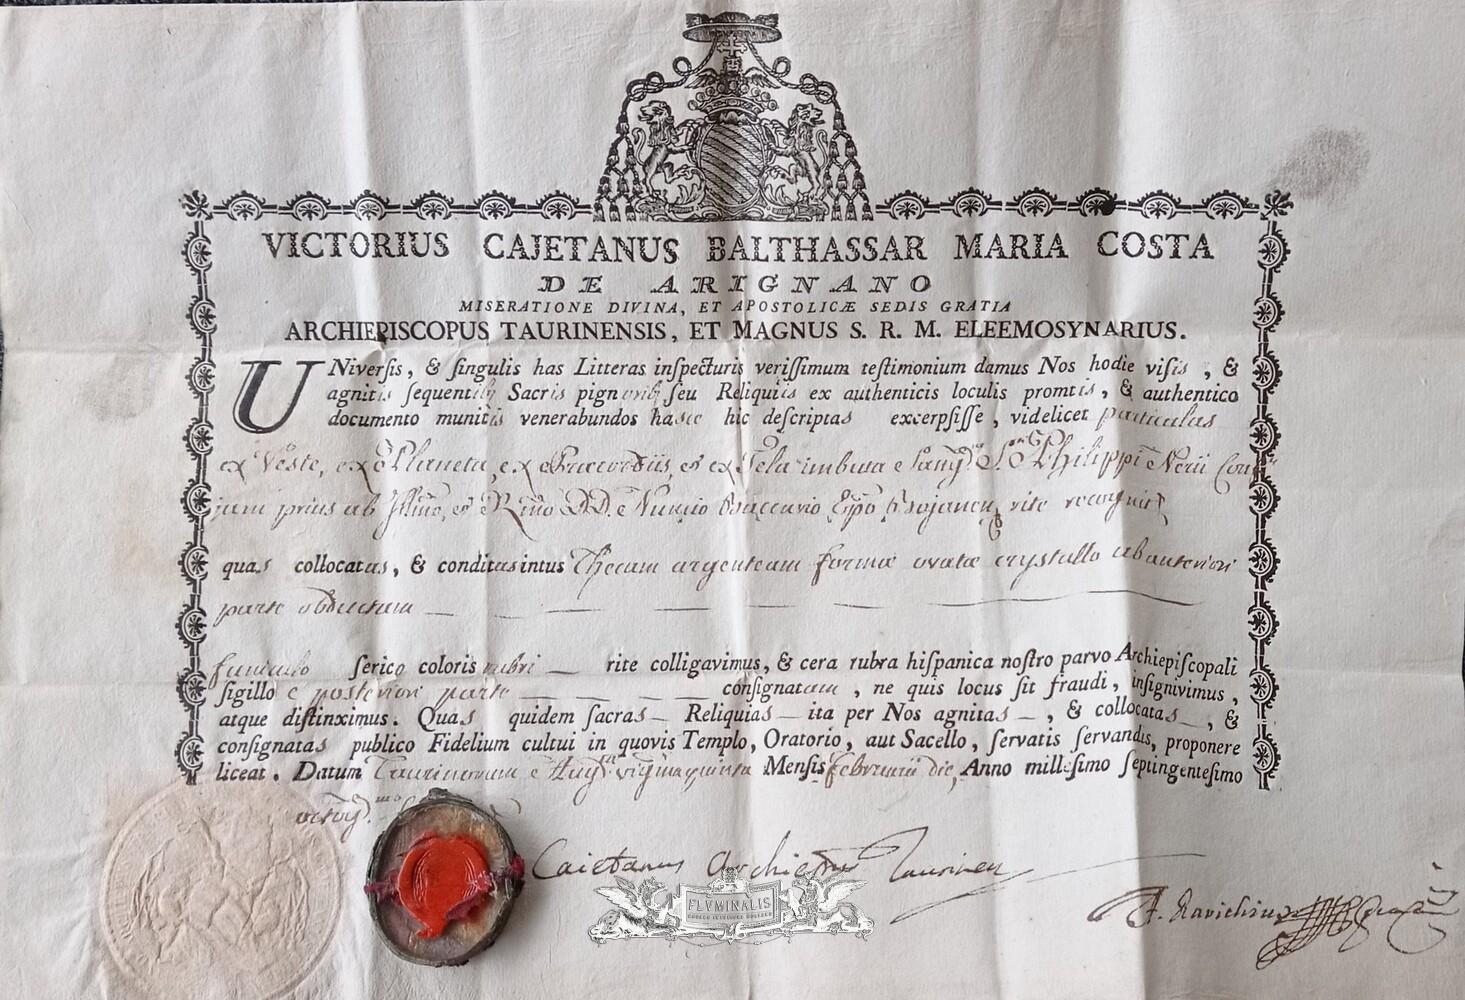 VICTORIUS CAJETANUS BALTHASSAR MARIA COSTA
DE ARIGNANO
MISERATIONE DIVINA, ET APOSTOLICÆ SEDIS GRATIA
ARCHIEPISCOPUS TAURINENSIS, ET MAGNUS S. R. M. ELEEMOSYNARIUS.
UNiverſis, & ſingulis has Litteras inſpecturis veriſſimum teſtimonium damus Nos hodie viſis, &
agnitis ſequentib; Sacris pignorib; ſeu Reliquiis ex authenticis loculis promtis, & authentico
documento munitis venerabundos hasce hic deſcriptas excerpſiſſe, videlicet particulas
ex Veste, ex Planeta, ex Præcordiis, et ex Tela imbuta Sang. S. Philippi Nerii
jam prius ab et DD. Nuncio rite recognit
quas collocatas, & conditas intus Thecam argenteam formæ ovatæ crystallo ab anteriori
parte obductam
funiculo ſerico coloris rubri rite colligavimus, & cera rubra hiſpanica noſtro parvo Archiepiſcopali
ſigillo e posteriori parte conſignatam, ne quis locus ſit fraudi, inſignivimus,
atque diſtinximus. Quas quidem ſacras Reliquias ita per Nos agnitas, & collocatas, &
conſignatas publico Fidelium cultui in quovis Templo, Oratorio, aut Sacello, ſervatis ſervandis, proponere
liceat. Datum Taurinorum Aug. vigesima quinta Menſis februarii die, Anno milleſimo ſeptingenteſimo
Caietanus Taurinen
FLVMINALIS